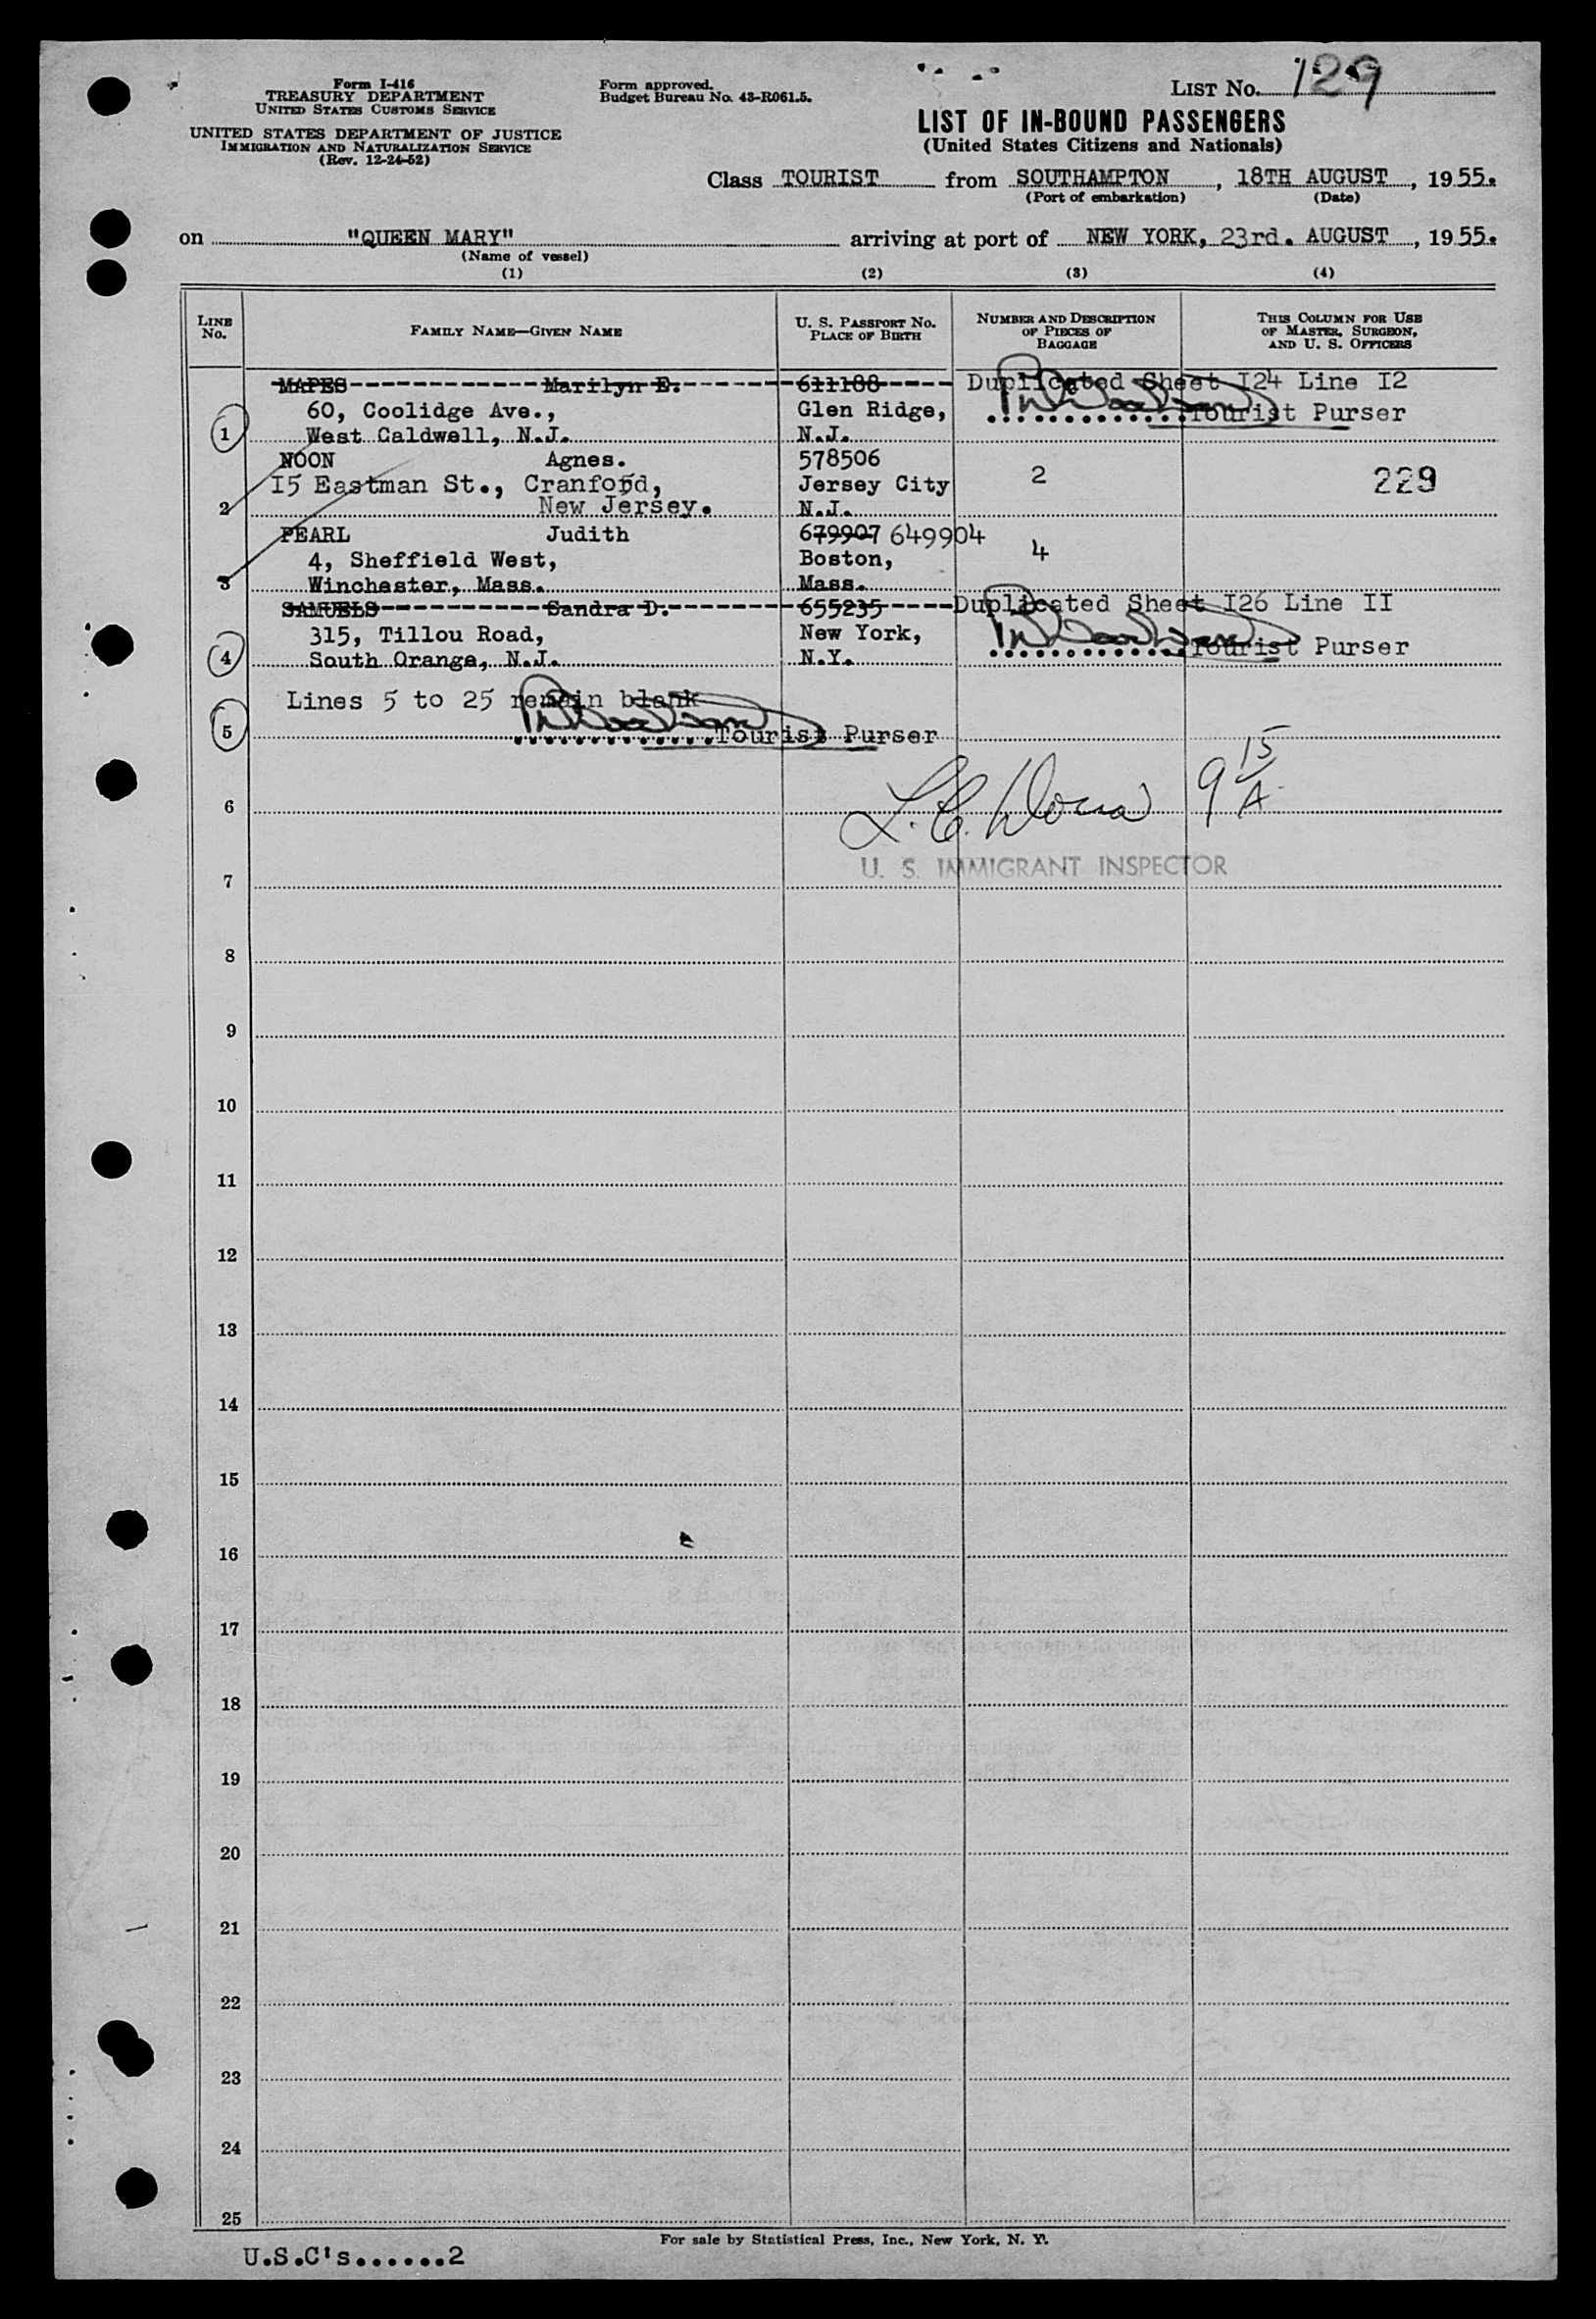 Form I-416
TREASURY DEPARTMENT
UNITED STATES CUSTOMS SERVICE
UNITED STATES DEPARTMENT OF JUSTICE
IMMIGRATION AND NATURALIZATION SERVICE
(Rev. 12-24-52)
Form approved.
Budget Bureau No. 43-R061.5.
LIST No. 129
LIST OF IN-BOUND PASSENGERS
(United States Citizens and Nationals)
Class TOURIST from SOUTHAMPTON, 18TH AUGUST, 1955.
(Port of embarkation) (Date)
on "QUEEN MARY" arriving at port of NEW YORK, 23rd. AUGUST, 1955.
(Name of vessel)
(1) (2) (3) (4)
LINE No. FAMILY NAME—GIVEN NAME U. S. PASSPORT No. PLACE OF BIRTH NUMBER AND DESCRIPTION OF PIECES OF BAGGAGE THIS COLUMN FOR USE OF MASTER, SURGEON, AND U. S. OFFICERS
MAPES Marilyn E. 611188 Duplicated Sheet I24 Line I2
60, Coolidge Ave., Glen Ridge, Tourist Purser
1 West Caldwell, N.J. N.J.
NOON Agnes. 578506
I5 Eastman St., Cranford, Jersey City 2 229
2 New Jersey. N.J.
PEARL Judith 679907 649904
4, Sheffield West, Boston, 4
3 Winchester, Mass. Mass.
SAMUELS Sandra D. 655235 Duplicated Sheet I26 Line II
315, Tillou Road, New York, Tourist Purser
4 South Orange, N.J. N.Y.
Lines 5 to 25 remain blank
5 Tourist Purser
6 9 15/A
7 U. S. IMMIGRANT INSPECTOR
8
9
10
11
12
13
14
15
16
17
18
19
20
21
22
23
24
25
For sale by Statistical Press, Inc., New York, N. Y.
U.S.C's......2